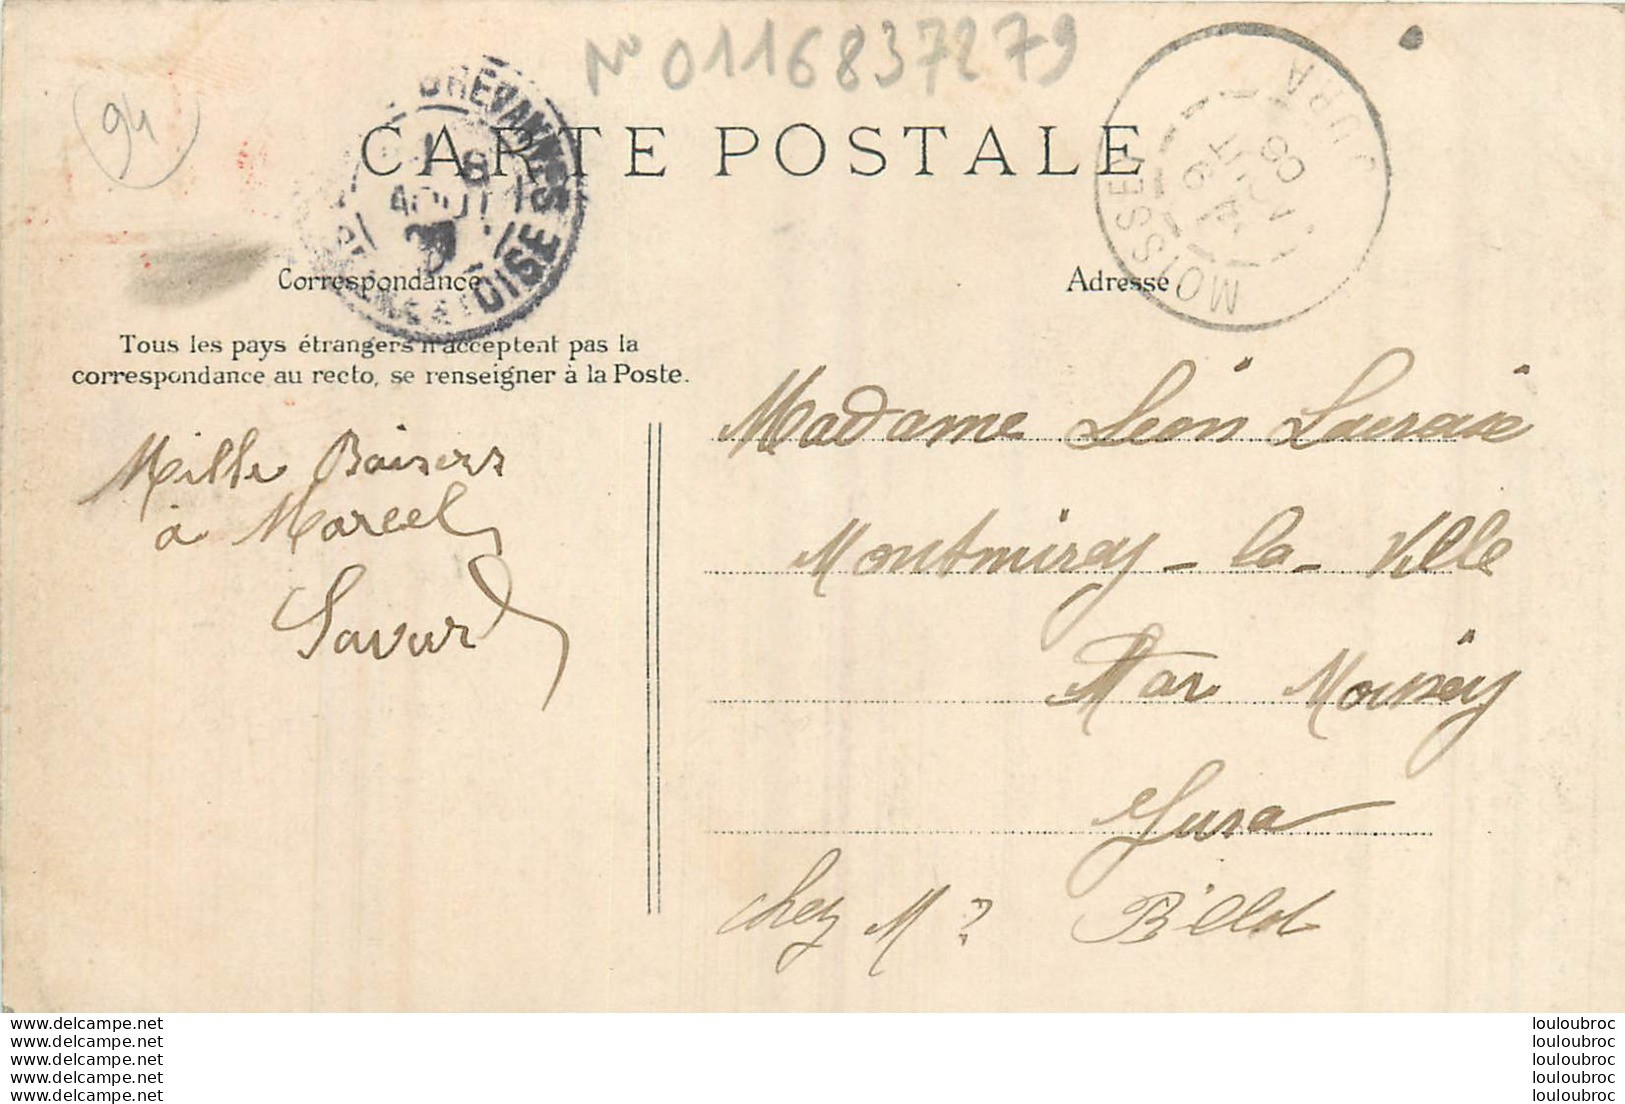 No 0116837279
94
CARTE POSTALE
BREVANNES
8
AOUT
OISE
MOISSEY
JURA
Correspondance
Adresse
Tous les pays étrangers n'acceptent pas la
correspondance au recto, se renseigner à la Poste.
Mille Baisers
à Marcel
Savurd
Madame Léon
Montmirey-la-Ville
Par Moissey
Jura
chez Mr Billot
www.delcampe.net
www.delcampe.net
www.delcampe.net
www.delcampe.net
www.delcampe.net
louloubroc
louloubroc
louloubroc
louloubroc
louloubroc